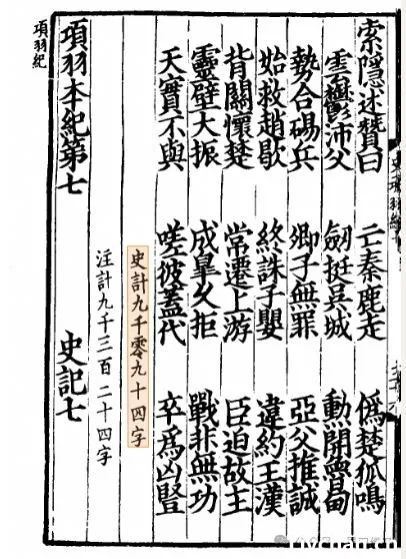 索隱述贊曰　亡秦鹿走　僞楚狐鳴
雲鬱沛父　劒挺吳城　勲開魯甸
勢合碭兵　卿子無罪　亞父推誠
始救趙歇　終誅子嬰　違約王漢
背關懷楚　常遷上游　臣迫故主
靈壁大振　成臯久拒　戰非無功
天實不與　嗟彼蓋代　卒爲凶豎
史計九千零九十四字
注計九千三百二十四字
項羽本紀第七　史記七
項羽紀